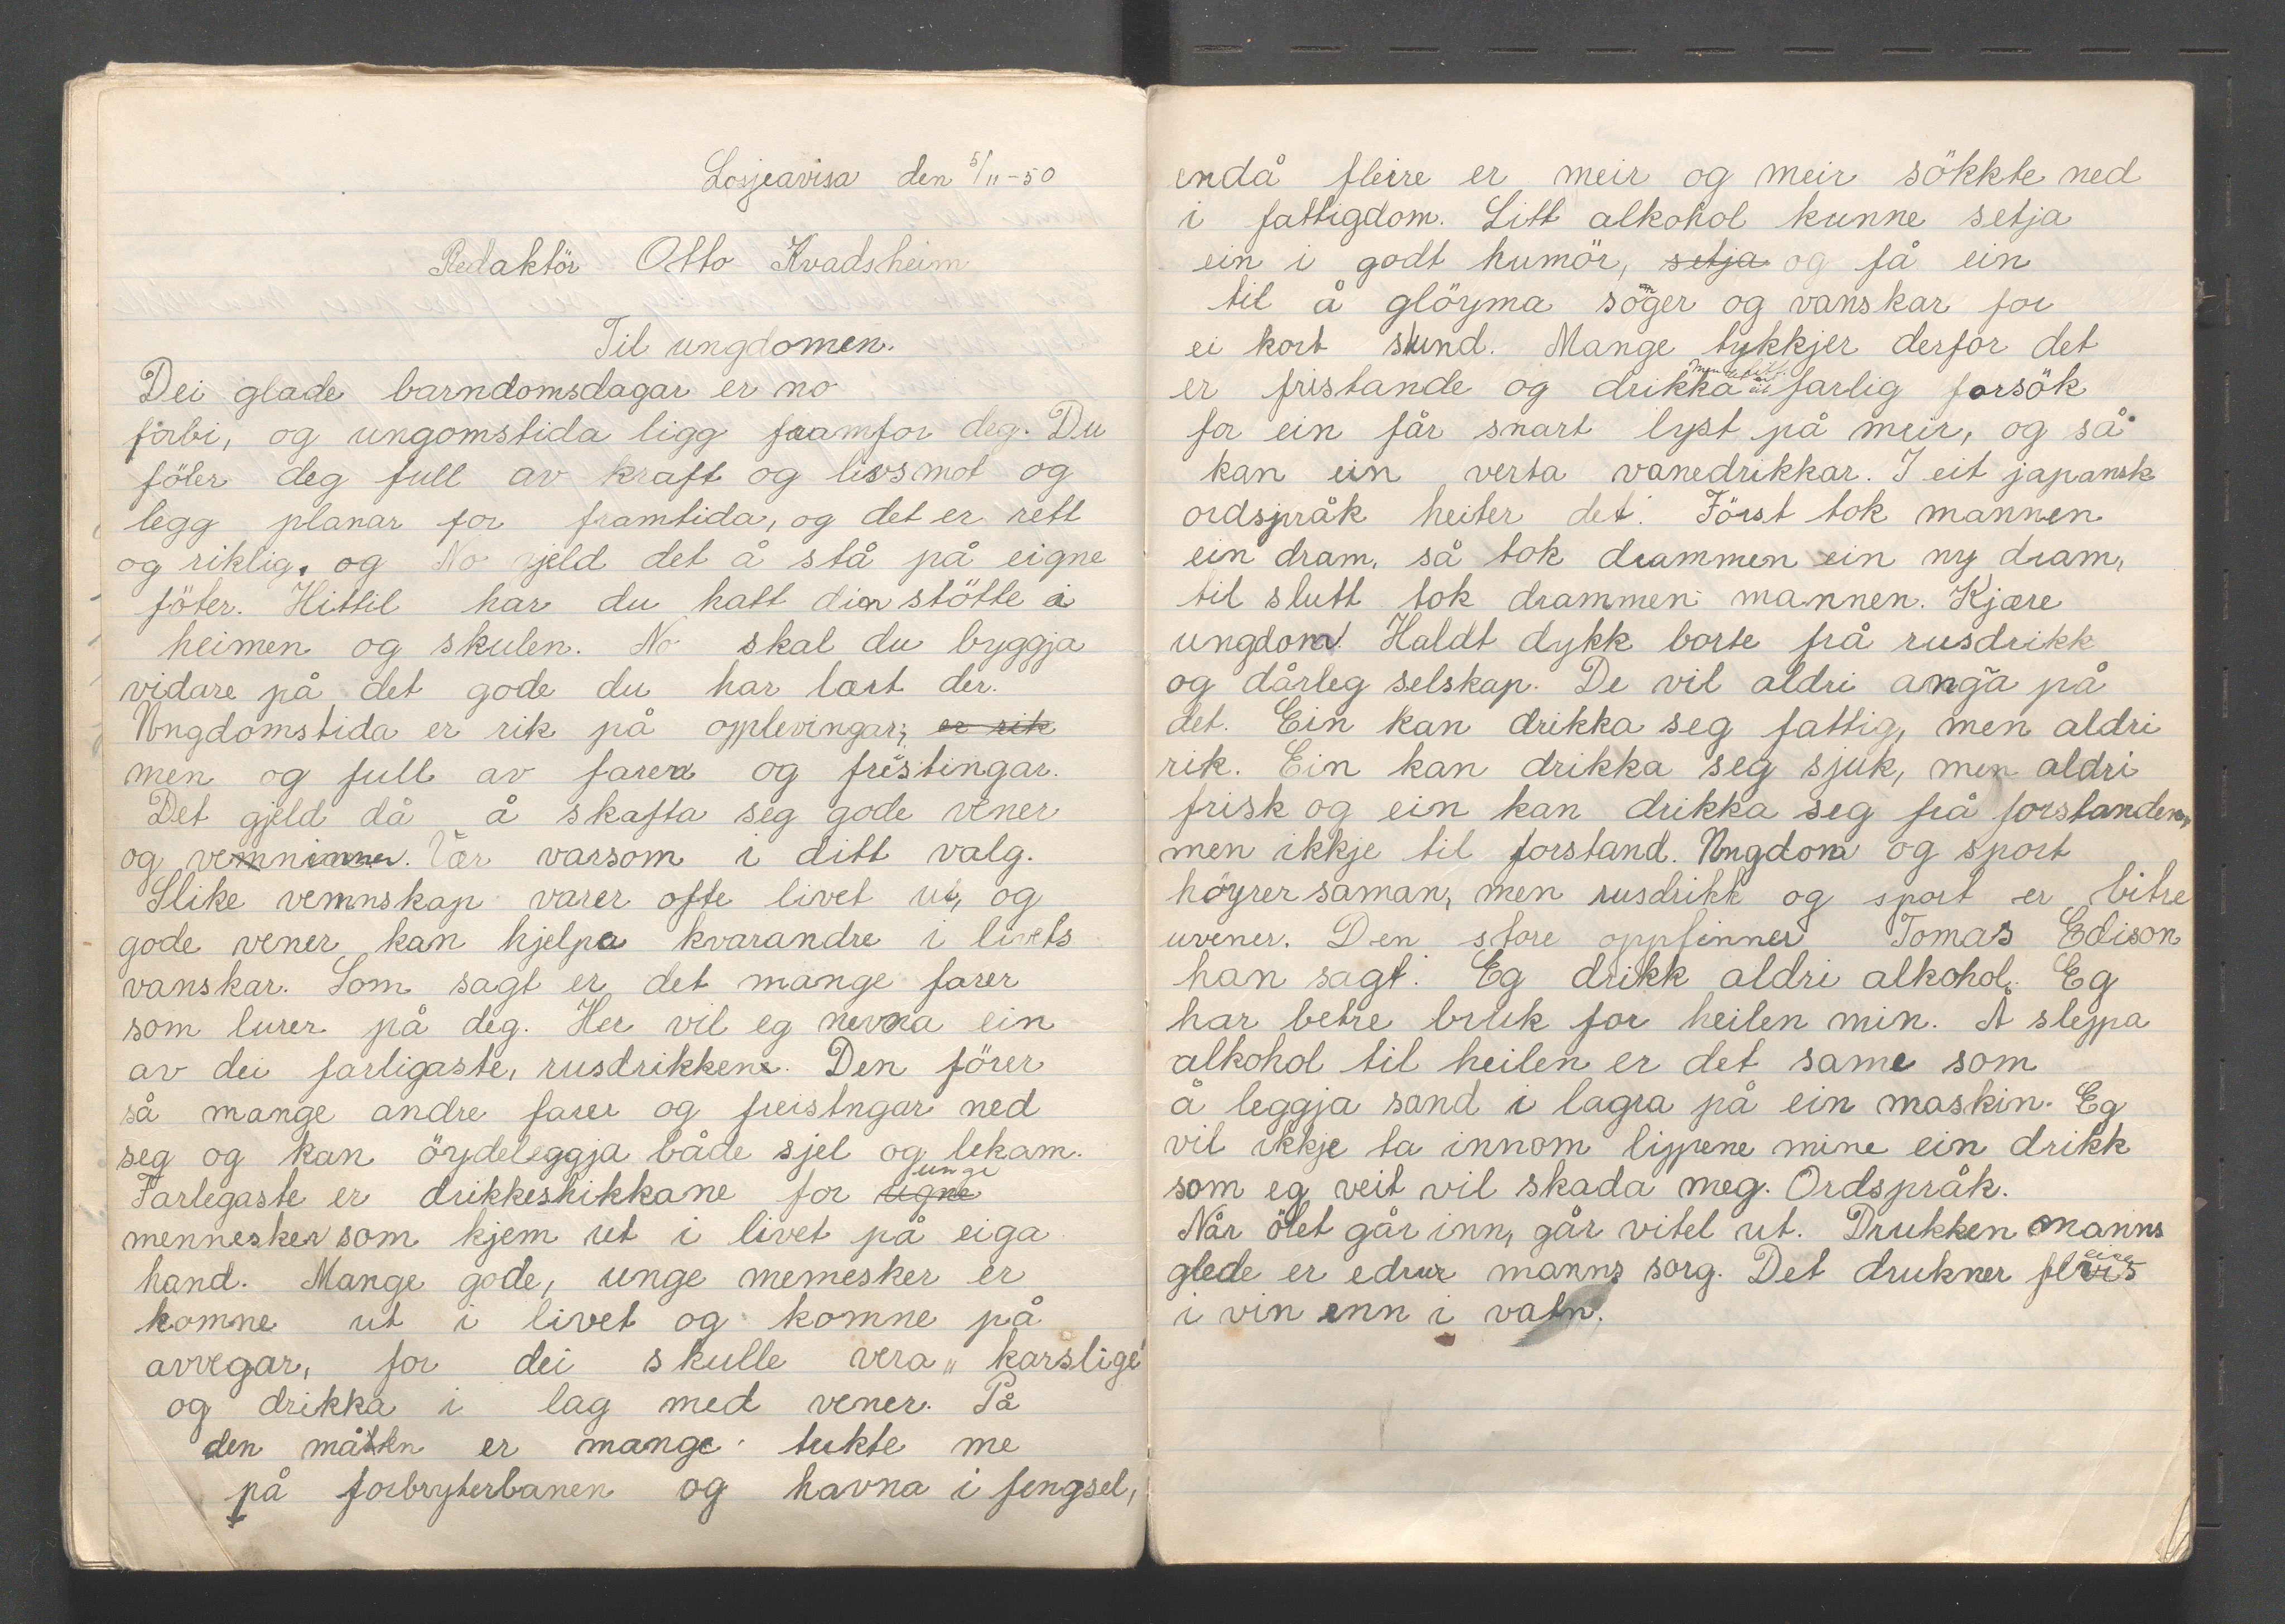 Losjeavisa den 5/11-50
Redaktör Otto Kvadsheim
Til ungdomen.
Dei glade barndomsdagar er no
forbi, og ungomstida ligg framfor deg. Du
föler deg full av kraft og livsmot og
legg planar for framtida, og det er rett
og riktig, og No gjeld det å stå på eigne
föter. Hittil har du hatt din stötte i
heimen og skulen. No skal du byggja
vidare på det gode du har lært der.
Ungdomstida er rik på opplevingar, er rik
men og full av farer og fristingar.
Det gjeld då å skaffa seg gode vener
og venninner. Vær varsom i ditt valg.
Slike vennskap varer ofte livet ut, og
gode vener kan hjelpa kvarandre i livets
vanskar. Som sagt er det mange farer
som lurer på deg. Her vil eg nevna ein
av dei farligaste, rusdrikken. Den förer
så mange andre farer og freistngar ned
seg og kan öydeleggja både sjel og lekam.
Farlegaste er drikkeskikkane for ugne unge
mennesker som kjem ut i livet på eiga
hand. Mange gode, unge mennesker er
komne ut i livet og komne på
avvegar, for dei skulle vera „karslige"
og drikka i lag med vener. På
den måtten er mange lukte me
på forbryterbanen og havna i fengsel,
endå fleire er meir og meir sökkte ned
i fattigdom. Litt alkohol kunne setja
ein i godt humör, setja og få ein
til å glöyma söger og vanskar for
ei kort stund. Mange tykkjer derfor det
er fristande og drikka men farlig forsök
for ein får snart lyst på meir, og så
kan ein verta vanedrikkar. I eit japansk
ordspråk heiter det: Först tok mannen
ein dram, så tok drammen ein ny dram,
til slutt tok drammen mannen. Kjære
ungdom! Haldt dykk borte frå rusdrikk
og dårleg selskap. De vil aldri angra på
det. Ein kan drikka seg fattig, men aldri
rik. Ein kan drikka seg sjuk, men aldri
frisk og ein kan drikka seg frå forstanden,
men ikkje til forstand. Ungdom og sport
höyrer saman, men rusdrikk og sport er bitre
uvener. Den store oppfinner Tomas Edison
han sagt: Eg drikk aldri alkohol. Eg
har betre bruk for heilen min. Å sleppa
alkohol til heilen er det same som
å leggja sand i lagra på ein maskin. Eg
vil ikkje ta innom lippene mine ein drikk
som eg veit vil skada meg. Ordspråk.
Når ölet går inn, går vitel ut. Drukken manns
glede er edrur manns sorg. Det drukner fleire
i vin enn i vatn.